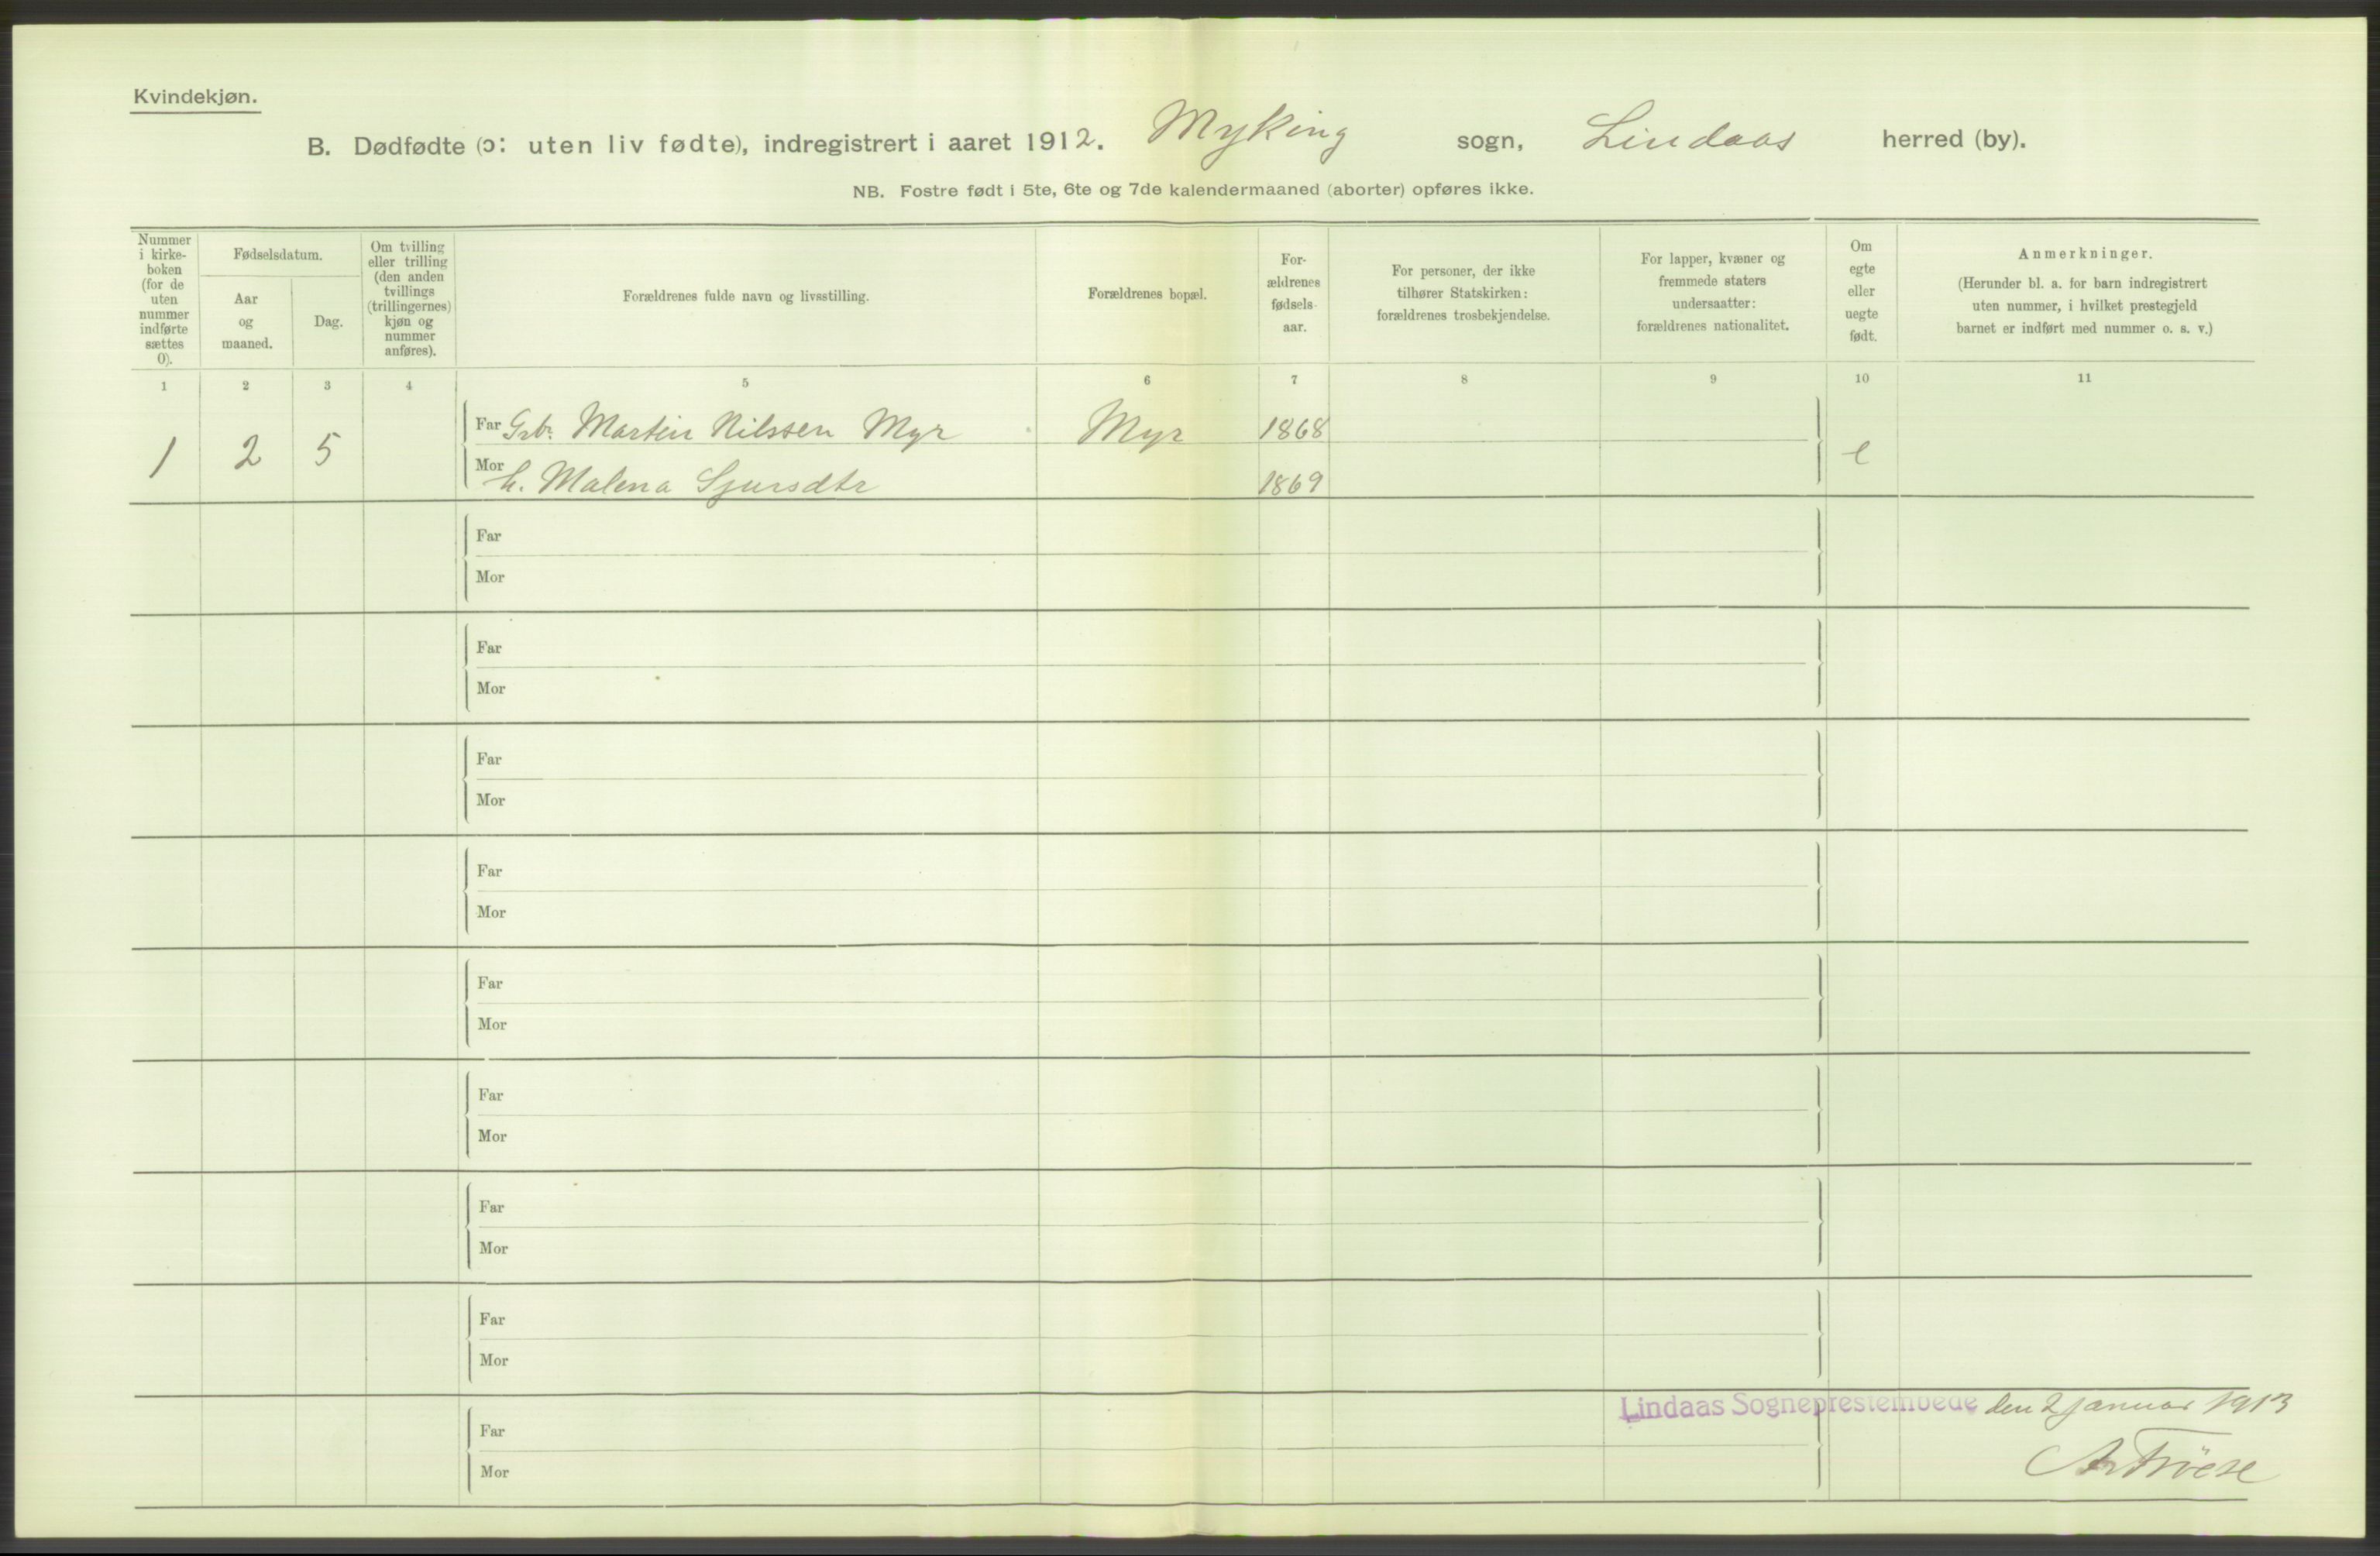 Kvindekjøn.
B. Dødfødte (ɔ: uten liv fødte), indregistrert i aaret 1912. Myking sogn, Lindaas herred (by).
NB. Fostre født i 5te, 6te og 7de kalendermaaned (aborter) opføres ikke.
Nummer i kirke-boken (for de uten nummer indførte sættes 0).
Fødselsdatum.
Aar og maaned.
Dag.
Om tvilling eller trilling (den anden tvillings (trillingernes) kjøn og nummer anføres).
Forældrenes fulde navn og livsstilling.
Forældrenes bopæl.
For-ældrenes fødsels-aar.
For personer, der ikke tilhører Statskirken: forældrenes trosbekjendelse.
For lapper, kvæner og fremmede staters undersaatter: forældrenes nationalitet.
Om egte eller uegte født.
Anmerkninger.
(Herunder bl. a. for barn indregistrert uten nummer, i hvilket prestegjeld barnet er indført med nummer o. s. v.)
1 2 3 4 5 6 7 8 9 10 11
1 2 5 Far Grbr. Martin Nilssen Myr Myr 1868 e
Mor h. Malena Sjursdtr 1869
Far
Mor
Far
Mor
Far
Mor
Far
Mor
Far
Mor
Far
Mor
Far
Mor
Far
Mor
Lindaas Sogneprestembede den 2 januar 1913
Far
Mor